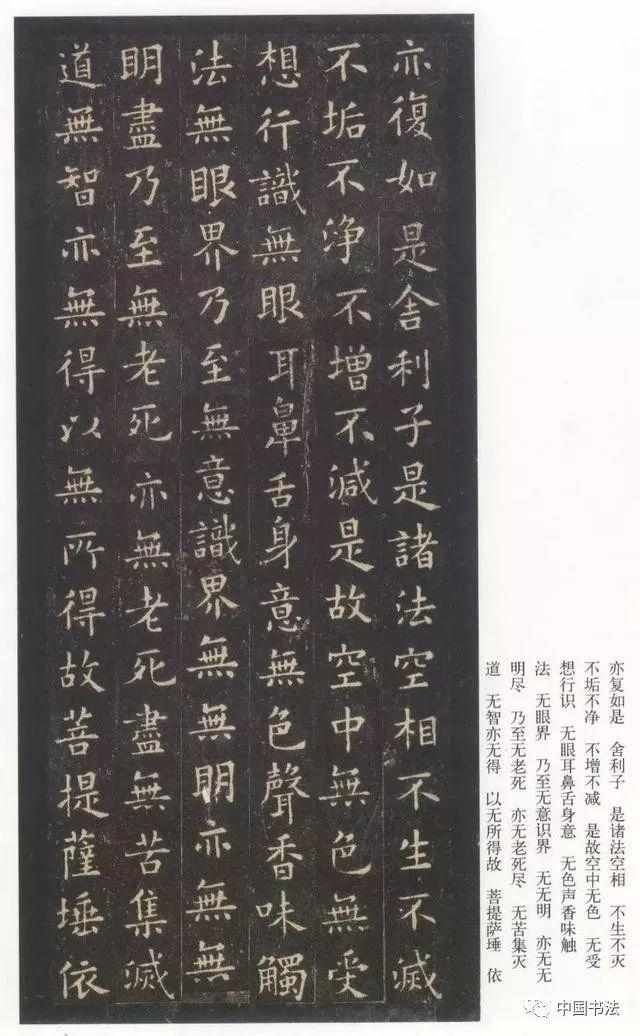 亦復如是舍利子是諸法空相不生不滅
不垢不淨不增不減是故空中無色無受
想行識無眼耳鼻舌身意無色聲香味觸
法無眼界乃至無意識界無無明亦無無
明盡乃至無老死亦無老死盡無苦集滅
道無智亦無得以無所得故菩提薩埵依
亦复如是　舍利子　是诸法空相　不生不灭
不垢不净　不增不减　是故空中无色　无受
想行识　无眼耳鼻舌身意　无色声香味触
法　无眼界　乃至无意识界　无无明　亦无无
明尽　乃至无老死　亦无老死尽　无苦集灭
道　无智亦无得　以无所得故　菩提萨埵　依
中国书法